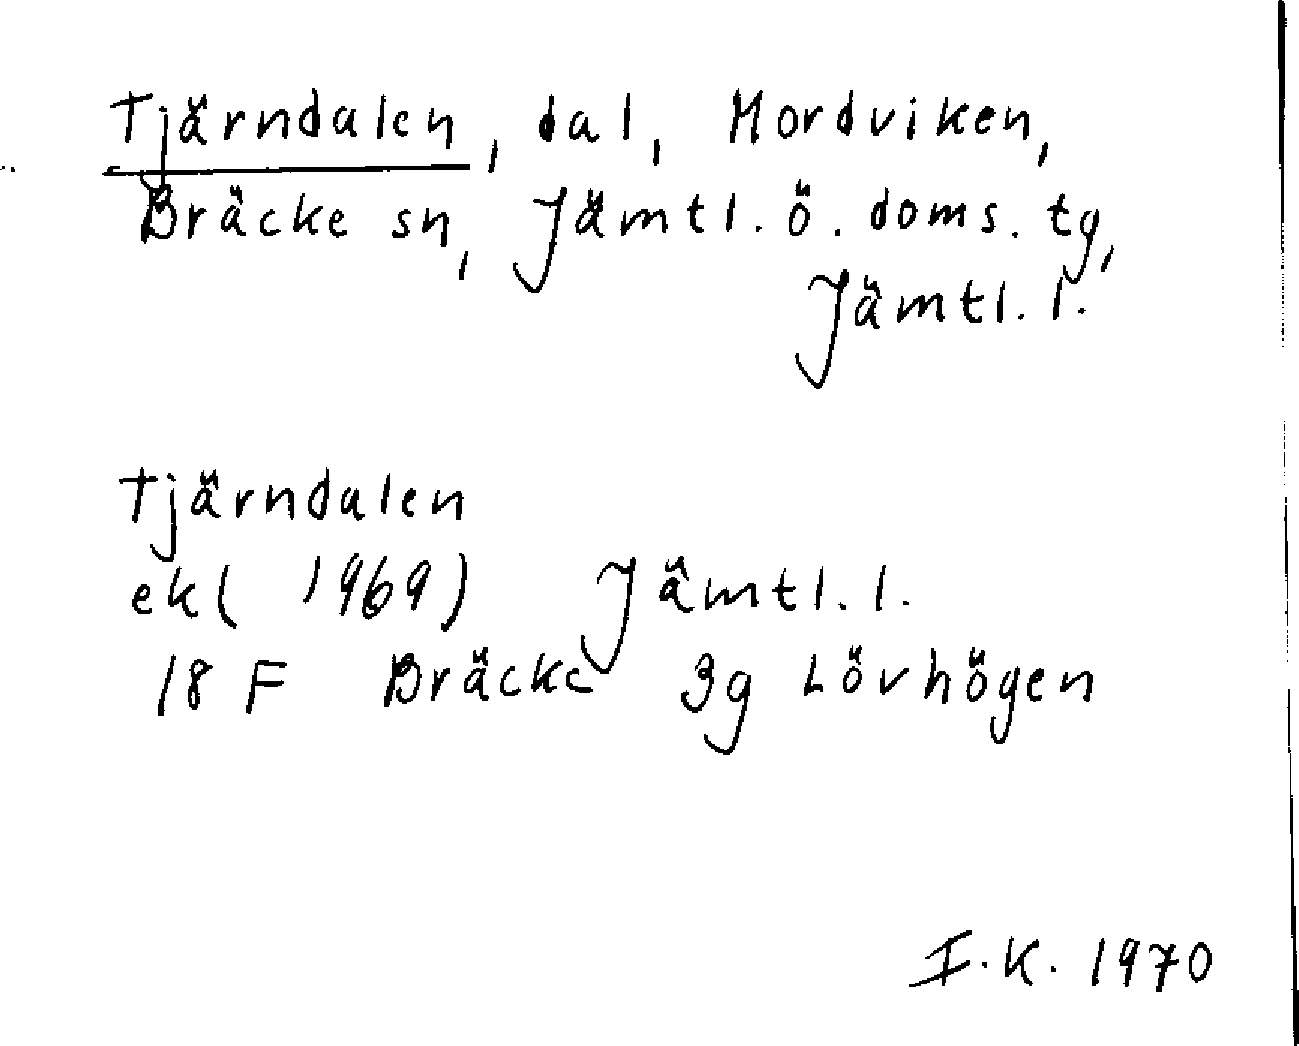 Tjärndalen, dal, Mordviken,
Bräcke sn, Jämtl. ö. doms. tg,
Jämtl. l.
Tjärndalen
ek( 1969) Jämtl. l.
18 F Bräcke 3g Lövhögen
I.K. 1970